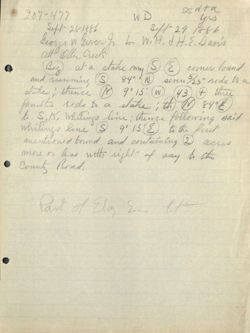 207-477 WD
Sept 28-1866 Sept 29 1866
George W. to W.H. & H.E. Davis
Creek
Beg at a stake my S E corner bound
and running S 84° W seven rods to a
stake; thence N 9° 15' W 43 & three
fourths rods to a stake; th N 84° E
to S.N. Whitings line; thence following said
Whitings line S 9° 15' E to the first
mentioned bound and containing 2 acres
more or less with right of way to the
County Road.
Part of